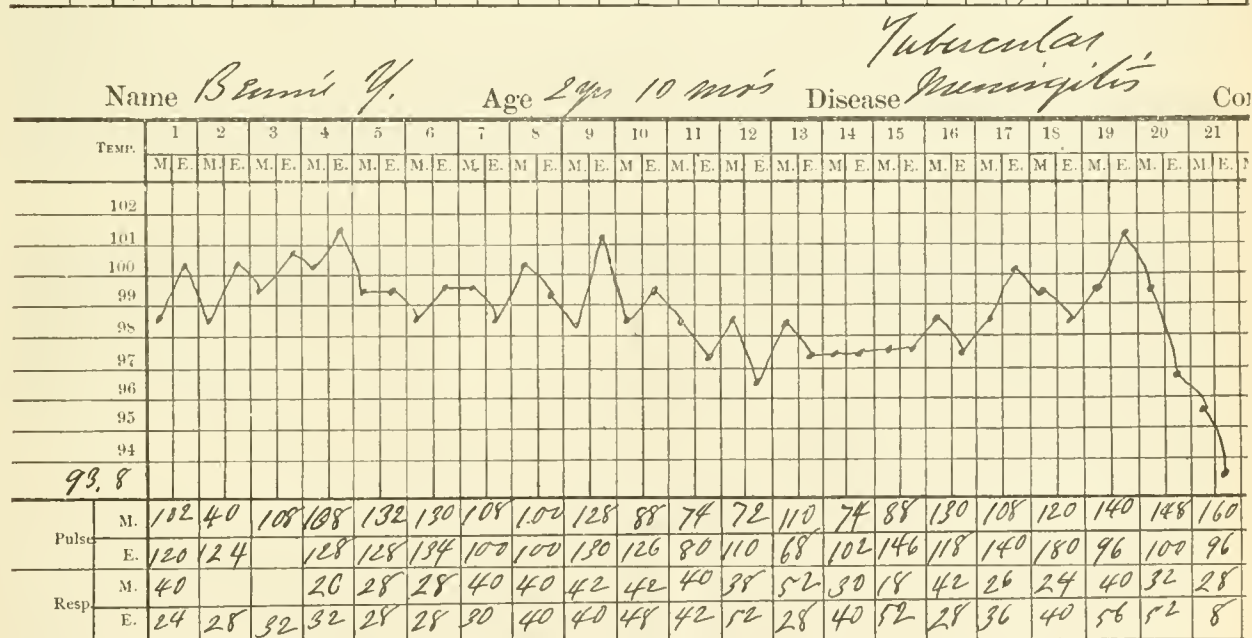 Tubercular
Name Bennie Y. Age 2 yrs 10 mos Disease Meningitis
TEMP. 1 2 3 4 5 6 7 8 9 10 11 12 13 14 15 16 17 18 19 20 21
M. E. M. E. M. E. M. E. M. E. M. E. M. E. M. E. M. E. M. E. M. E. M. E. M. E. M. E. M. E. M. E. M. E. M. E. M. E. M. E. M. E.
102
101
100
99
98
97
96
95
94
93.8
Pulse M. 132 40 108 108 132 130 108 100 128 88 74 72 110 74 88 130 108 120 140 148 160
E. 120 124 128 128 134 100 100 130 126 80 110 68 102 146 118 140 180 96 100 96
Resp. M. 40 26 28 28 40 40 42 42 40 38 52 30 18 42 26 24 40 32 28
E. 24 28 32 32 28 28 30 40 40 48 42 52 28 40 52 28 36 40 56 52 8